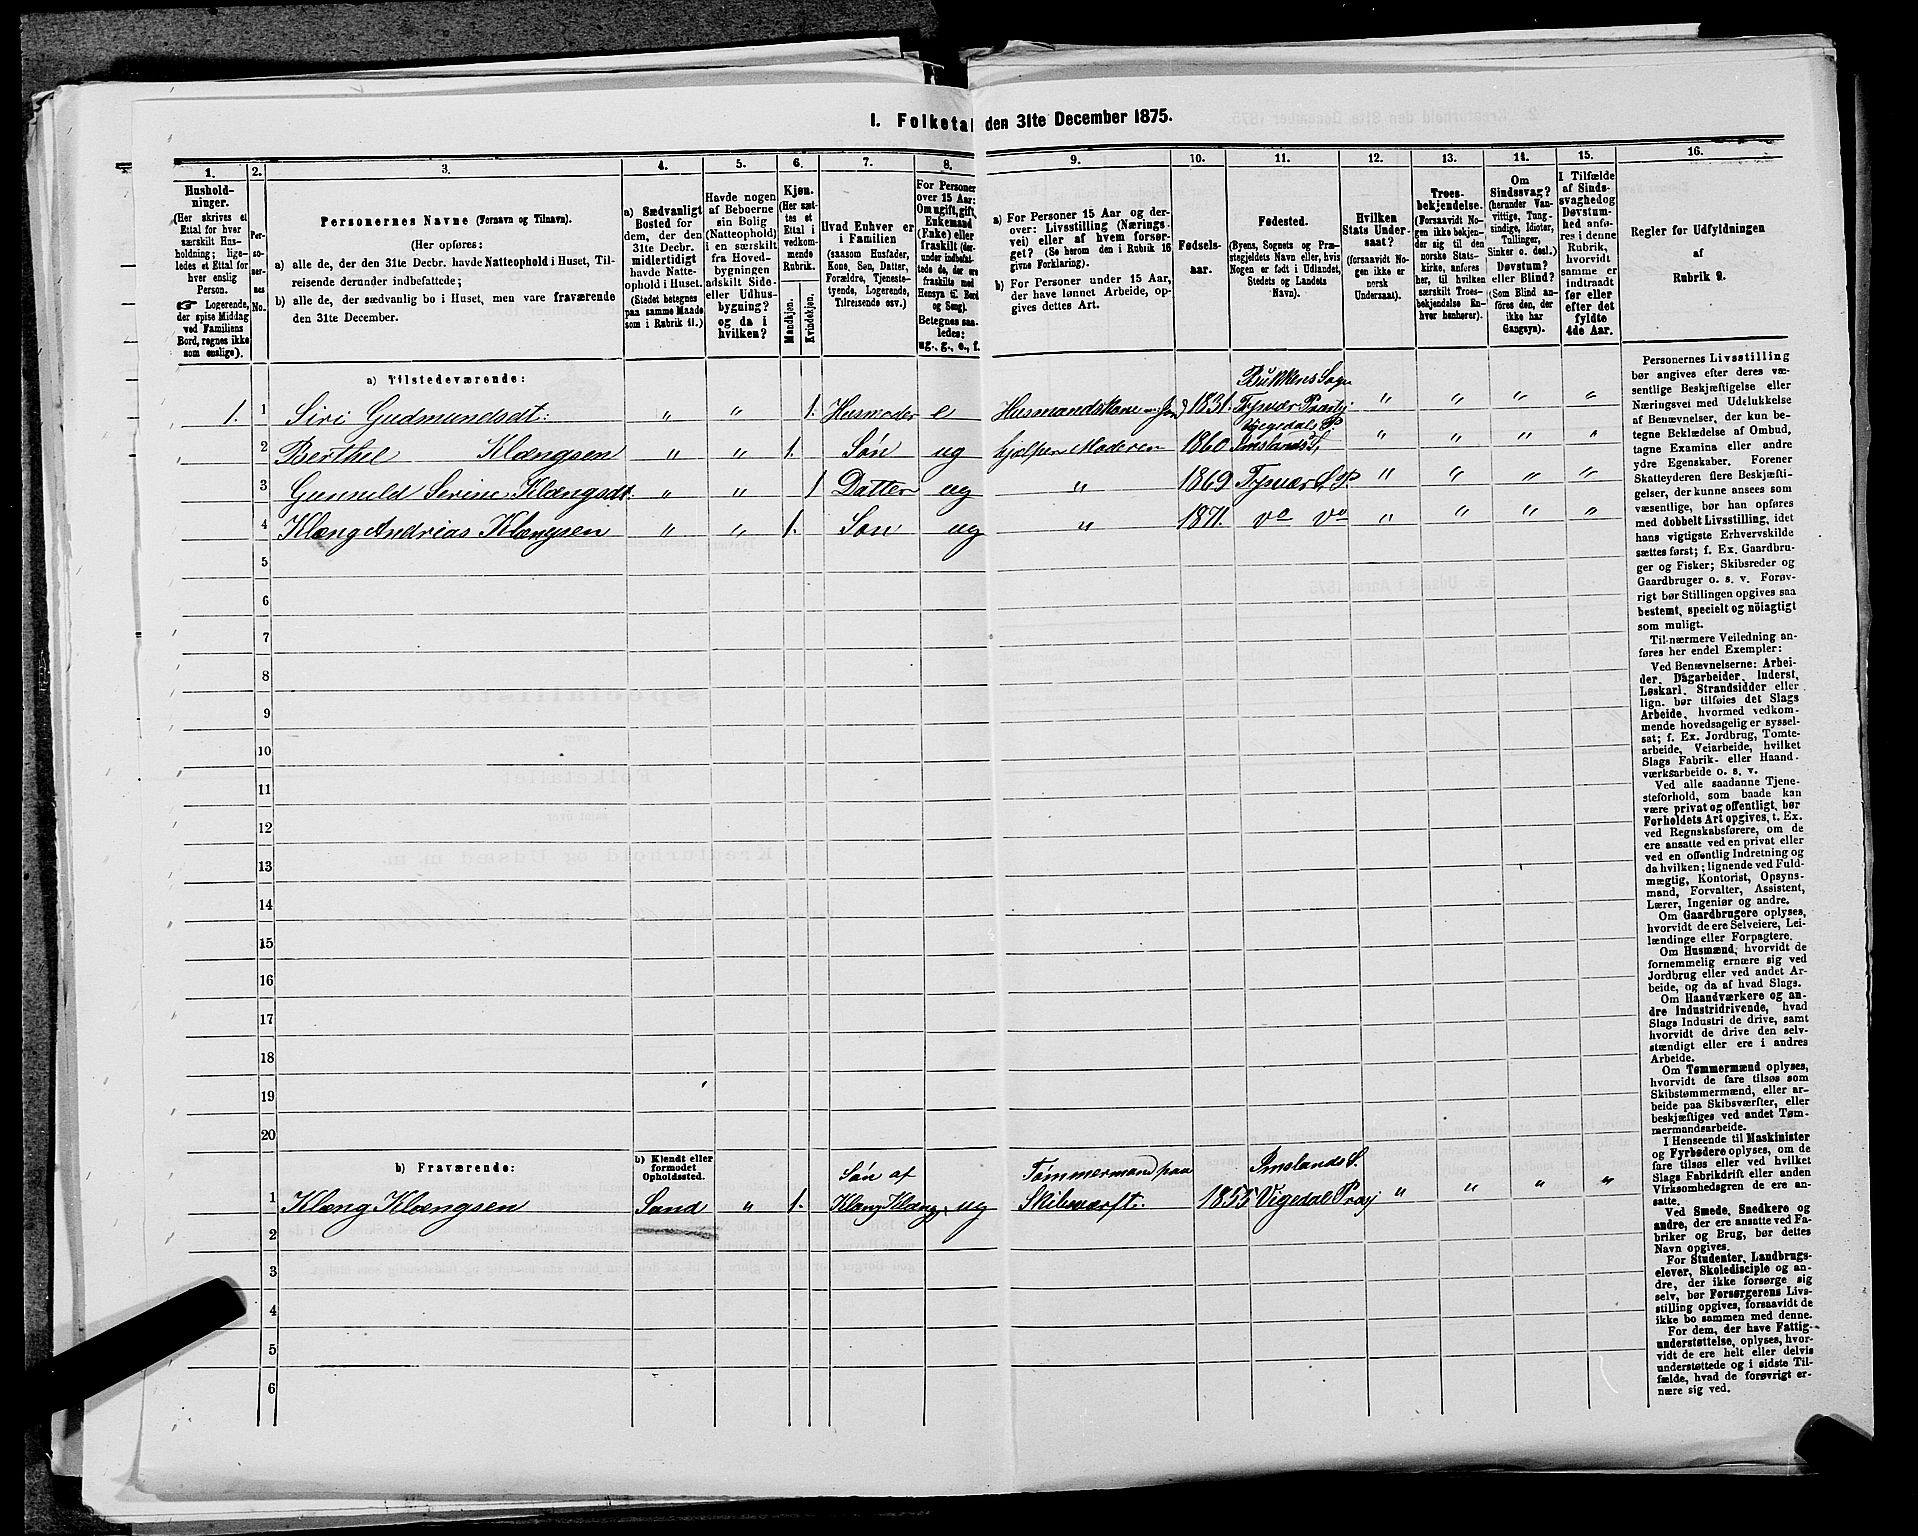 1. Folketal den 31te December 1875.
1.
2.
3.
4.
5.
6.
7.
8.
9.
10.
11.
12.
13.
14.
15.
16.
Hushold-
ninger.
(Her skrives et
Ettal for hver
særskilt Hus-
holdning; lige-
ledes et Ettal for
hver enslig
Person.
☞ Logerende,
der spise Middag
ved Familiens
Bord, regnes ikke
som enslige).
Per-
so-
ner-
nes
No.
Personernes Navne (Fornavn og Tilnavn).
(Her opføres:
a) alle de, der den 31te Decbr. havde Natteophold i Huset, Til-
reisende derunder indbefattede;
b) alle de, der sædvanlig bo i Huset, men vare fraværende
den 31te December.
a) Sædvanligt
Bosted for
dem, der den
31te Decbr.
midlertidigt
havde Natte-
ophold i Huset.
(Stedet betegnes
paa samme Maade
som i Rubrik 11.)
Havde nogen
af Beboerne
sin Bolig
(Natteophold)
i en særskilt
fra Hoved-
bygningen
adskilt Side-
eller Udhus-
bygning?
og da i
hvilken?
Kjøn.
(Her sæt-
tes et
Ettal i
vedkom-
mende
Rubrik.
Mandkjøn.
Kvindekjøn.
Hvad Enhver er
i Familien
(saasom Husfader,
Kone, Søn, Datter,
Forældre, Tjeneste-
tyende, Logerende,
Tilreisende osv.)
For Personer
over 15 Aar:
Om ugift, gift,
Enkemand
(Enke) eller
fraskilt (der-
under indbefat-
tede de, der ere
fraskilte med
Hensyn til Bord
og Seng).
Betegnes saa-
ledes:
ug., g., e., f.
a) For Personer 15 Aar og der-
over: Livsstilling (Nærings-
vei) eller af hvem forsør-
get? (Se herom den i Rubrik 16
givne Forklaring).
b) For Personer under 15 Aar,
der have lønnet Arbeide, op-
gives dettes Art.
Fødsels-
aar.
Fødested.
(Byens, Sognets og Præ-
stegjeldets Navn eller, hvis
Nogen er født i Udlandet,
Stedets og Landets
Navn).
Hvilken
Stats Under-
saat?
(forsaavidt No-
gen ikke er
norsk
Undersaat).
Troes-
bekjendelse.
(Forsaavidt No-
gen ikke bekjen-
der sig til den
norske Stats-
kirke, anføres
her, til hvilken
særskilt Troes-
bekjendelse En-
hver henhører).
Om
Sindssvag?
(herunder Van-
vittige, Tung-
sindige, Idioter,
Tullinger,
Sinker o. desl.)
Døvstum?
eller Blind?
(Som Blind an-
føres den, der
ikke har
Gangsyn).
I Tilfælde
af Sinds-
svaghed og
Døvstum-
hed anfø-
res i denne
Rubrik,
hvorvidt
samme er
indtraadt
før eller
efter det
fyldte
4de Aar.
Regler for Udfyldningen
af
Rubrik 9.
a) Tilstedeværende:
1. 1 Siri Gudmundsdt: " " 1. Husmoder e Husmandskone m. Jord 1831. Bukkens Sogn Tysvær Præstgj " " " "
2 Berthel Klængsen " " 1. Søn ug hjælper Moderen 1860 Vigedals P. Imslands S. " " " "
3 Gunnild Serine Klængsdt. " " 1 Datter ug " 1869 Tysvær S. P. " " " "
4 Klæng Andrias Klængsen " " 1. Søn ug " 1871. do do " " " "
5
6
7
8
9
10
11
12
13
14
15
16
17
18
19
20
b) Fraværende:
b) Kjendt eller
formodet
Opholdssted.
1 Klæng Klængsen Sand " 1. Søn af Klæng Klæng. ug Tømmermand paa Skibsværft. 1855 Imslands S. Vigedal Præj " " " "
2
3
4
5
6
Personernes Livsstilling
bør angives efter deres væ-
sentlige Beskjæftigelse eller
Næringsvei med Udelukkelse
af Benævnelser, der kun be-
tegne Beklædelse af Ombud,
tagne Examina eller andre
ydre Egenskaber. Forener
Skatteyderen flere Beskjæfti-
gelser, der kunne ansees som
væsentlige, bør han opføres
med dobbelt Livsstilling, idet
hans vigtigste Erhvervskilde
sættes først; f. Ex. Gaardbru-
ger og Fisker; Skibsreder og
Gaardbruger o. s. v. Forøv-
rigt bør Stillingen opgives saa
bestemt, specielt og nöiagtigt
som muligt.
Til nærmere Veiledning an-
føres her endel Exempler:
Ved Benævnelserne: Arbei-
der, Dagarbeider, Inderst,
Løskarl, Strandsidder eller
lign. bør tilføies det Slags
Arbeide, hvormed vedkom-
mende hovedsagelig er syssel-
sat; f. Ex. Jordbrug, Tomte-
arbeide, Veiarbeide, hvilket
Slags Fabrik- eller Haand-
værksarbeide o. s. v.
Ved alle saadanne Tjene-
steforhold, som baade kan
være privat og offentligt, bør
Forholdets Art opgives, t. Ex.
ved Regnskabsførere, om de
ere ansatte ved en privat eller
ved en offentlig Indretning og
da hvilken; lignende ved Fuld-
mægtig, Kontorist, Opsyns-
mand, Forvalter, Assistent,
Lærer, Ingeniør og andre.
Om Gaardbrugere oplyses,
hvorvidt de ere Selveiere, Lei-
lændinge eller Forpagtere.
Om Husmænd, hvorvidt de
fornemmelig ernære sig ved
Jordbrug eller ved andet Ar-
beide, og da af hvad Slags.
Om Haandværkere og an-
dre Industridrivende, hvad
Slags Industri de drive, samt
hvorvidt de drive den selv-
stændigt eller ere i andres
Arbeide.
Om Tømmermænd oplyses,
hvorvidt de fare tilsøs som
Skibstømmermænd, eller ar-
beide paa Skibsværfter, eller
beskjæftiges ved andet Tøm-
mermandsarbeide.
I Henseende til Maskinister
og Fyrbødere oplyses, om de
fare tilsøs eller ved hvilket
Slags Fabrikdrift eller anden
Virksomhedsgren de ere an-
satte.
Ved Smede, Snedkere og
andre, der ere ansatte ved Fa-
briker og Brug, bør dettes
Navn opgives.
For Studenter, Landbrugs-
elever, Skoledisciple og an-
dre, der ikke forsørge sig
selv, bør Forsørgerens Livs-
stilling opgives, forsaavidt de
ikke bo sammen med denne.
For dem, der have Fattig-
understøttelse, oplyses, hvor-
vidt de ere helt eller delvis
understøttede og i sidste Til-
fælde, hvad de forøvrigt er-
nære sig ved.